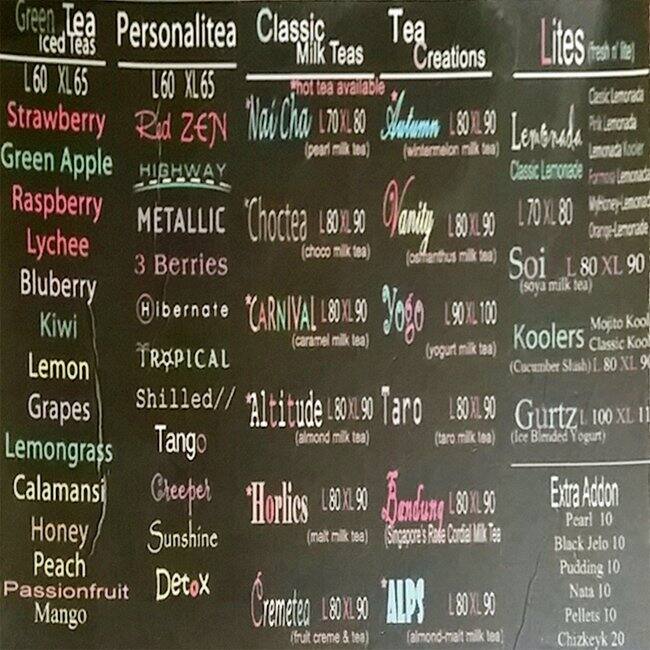 Green Tea
Iced Teas
L60 XL65
Strawberry
Green Apple
Raspberry
Lychee
Bluberry
Kiwi
Lemon
Grapes
Lemongrass
Calamansi
Honey
Peach
Passionfruit
Mango
Personalitea
L60 XL65
Red ZEN
HIGHWAY
METALLIC
3 Berries
Hibernate
TROPICAL
Shilled//
Tango
Creeper
Sunshine
Detox
Classic
Milk Teas
*hot tea available
*Nai Cha L70 XL80
(pearl milk tea)
*Choctea L80 XL90
(choco milk tea)
*CARNIVAL L80 XL90
(caramel milk tea)
*Altitude L80 XL90
(almond milk tea)
*Horlics L80 XL90
(malt milk tea)
Cremetea L80 XL90
(fruit creme & tea)
Tea
Creations
*Autumn L80 XL90
(wintermelon milk tea)
Vanity L80 XL90
(osmanthus milk tea)
Yogo L90 XL100
(yogurt milk tea)
Taro L80 XL90
(taro milk tea)
Bandung L80 XL90
(Singapore's Rose Cordial Milk Tea
*ALPS L80 XL90
(almond-malt milk tea)
Lites (fresh n' lite)
Lemonada
Classic Lemonade
L70 XL80
Classic Lemonada
Pink Lemonada
Lemonada Kooler
Formosa Lemonada
WyHoney-Lemonad
Orange-Lemonade
Soi L80 XL90
(soya milk tea)
Koolers Mojito Kool
Classic Kool
(Cucumber Slush) L80 XL 90
Gurtz L100 XL 11
(Ice Blended Yogurt)
Extra Addon
Pearl 10
Black Jelo 10
Pudding 10
Nata 10
Pellets 10
Chizkeyk 20